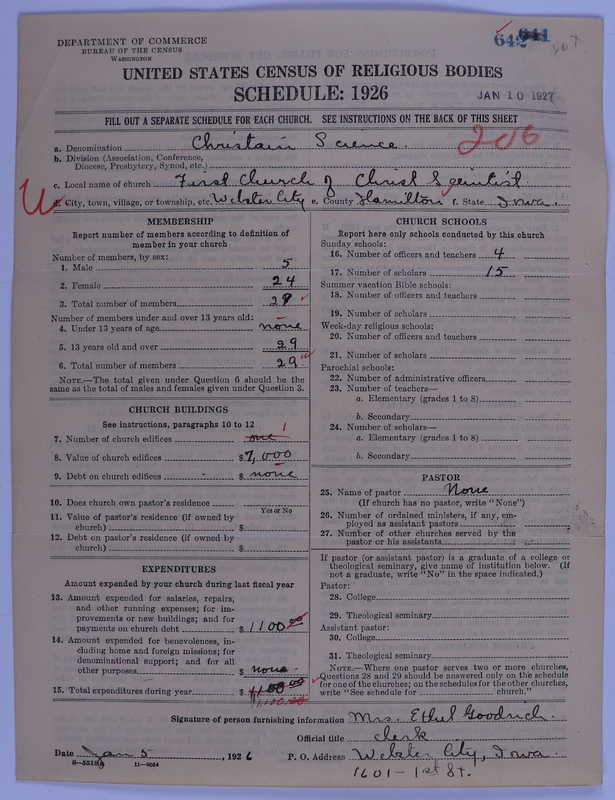 DEPARTMENT OF COMMERCE
BUREAU OF THE CENSUS
WASHINGTON
641
UNITED STATES CENSUS OF RELIGIOUS BODIES
SCHEDULE: 1926
JAN 10 1927
FILL OUT A SEPARATE SCHEDULE FOR EACH CHURCH. SEE INSTRUCTIONS ON THE BACK OF THIS SHEET
206
a. Denomination Christain Science.
b. Division (Association, Conference, Diocese, Presbytery, Synod, etc.)
c. Local name of church First Church of Christ Scientist
d. City, town, village, or township, etc. Webster City e. County Hamilton f. State Iowa.
MEMBERSHIP
Report number of members according to definition of member in your church
Number of members, by sex:
1. Male 5
2. Female 24
3. Total number of members 29
Number of members under and over 13 years old:
4. Under 13 years of age none
5. 13 years old and over 29
6. Total number of members 29
NOTE.—The total given under Question 6 should be the same as the total of males and females given under Question 3.
CHURCH BUILDINGS
See instructions, paragraphs 10 to 12
7. Number of church edifices one 1
8. Value of church edifices $7,000
9. Debt on church edifices $ none
10. Does church own pastor's residence
Yes or No
11. Value of pastor's residence (if owned by church) $
12. Debt on pastor's residence (if owned by church) $
EXPENDITURES
Amount expended by your church during last fiscal year
13. Amount expended for salaries, repairs, and other running expenses; for improvements or new buildings; and for payments on church debt $1100.00
14. Amount expended for benevolences, including home and foreign missions; for denominational support; and for all other purposes $ none
15. Total expenditures during year $1100.00
1,100.00
CHURCH SCHOOLS
Report here only schools conducted by this church
Sunday schools:
16. Number of officers and teachers 4
17. Number of scholars 15
Summer vacation Bible schools:
18. Number of officers and teachers
19. Number of scholars
Week-day religious schools:
20. Number of officers and teachers
21. Number of scholars
Parochial schools:
22. Number of administrative officers
23. Number of teachers—
a. Elementary (grades 1 to 8)
b. Secondary
24. Number of scholars—
a. Elementary (grades 1 to 8)
b. Secondary
PASTOR
25. Name of pastor None
(If church has no pastor, write "None")
26. Number of ordained ministers, if any, employed as assistant pastors
27. Number of other churches served by the pastor or his assistants
If pastor (or assistant pastor) is a graduate of a college or theological seminary, give name of institution below. (If not a graduate, write "No" in the space indicated.)
Pastor:
28. College
29. Theological seminary
Assistant pastor:
30. College
31. Theological seminary
NOTE.—Where one pastor serves two or more churches, Questions 28 and 29 should be answered only on the schedule for one of the churches; on the schedules for the other churches, write "See schedule for church."
Signature of person furnishing information Mrs. Ethel Goodrich.
Official title clerk
Date Jan 5, 1926 P. O. Address Webster City, Iowa.
1601 - 1st St.
8—5518a 11—9054